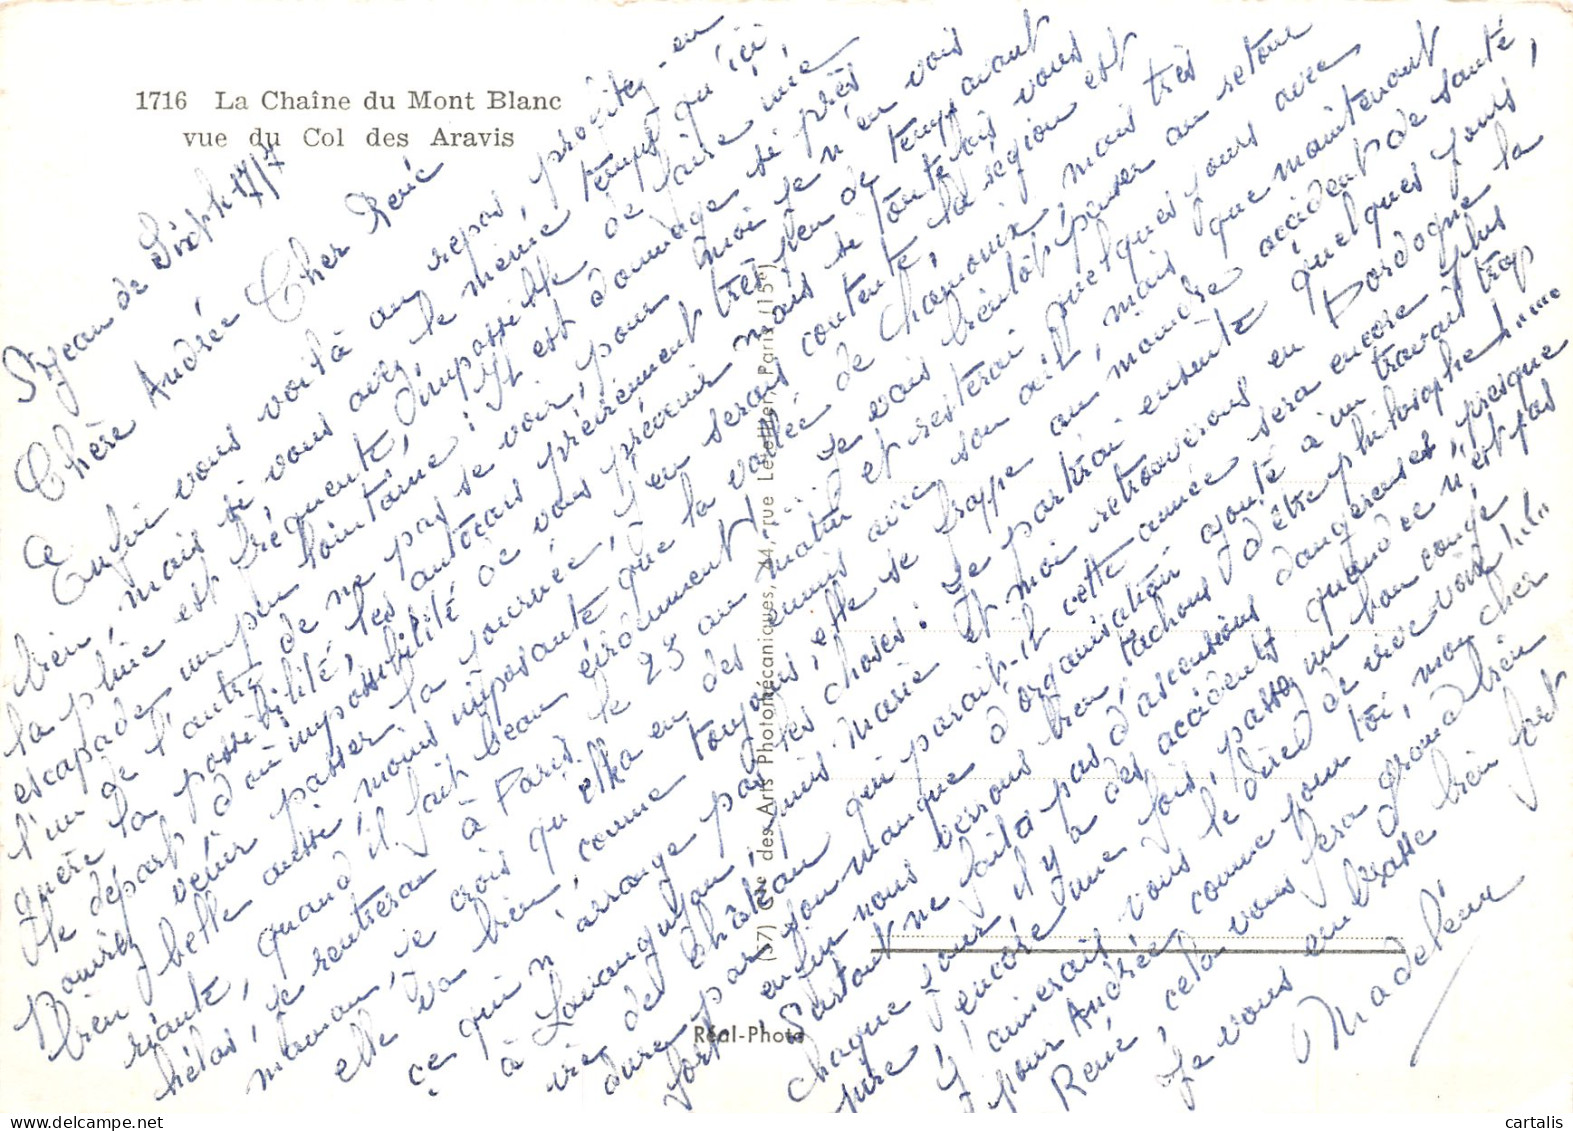 1716 La Chaîne du Mont Blanc
vue du Col des Aravis
St Jean de Sixt 17/7
Chère Andrée Cher René
Enfin vous voilà au repos, profitez-en
bien, mais si vous avez le même temps qu'ici,
la pluie est fréquente, impossible de faire une
escapade un peu lointaine! Il est dommage si près
l'un de l'autre de ne pas se voir, pour moi je n'en vois
guère la possibilité, les autocars prévenant très peu de temps avant
le départ d'où impossibilité de vous prévenir mais si toutefois vous
pouviez venir passer la journée, j'en serais contente, la région est
bien belle aussi moins imposante que la vallée de Chamonix, mais très
riante, quand il fait beau évidemment!!! Je vais bientôt penser au retour
hélas, je rentrerai à Paris le 23 au matin et resterai quelques jours avec
maman, je crois qu'elle a eu des ennuis avec son œil, mais que maintenant
elle va bien, comme toujours, elle se frappe au moindre accident de santé,
ce qui n'arrange pas les choses. Je partirai ensuite quelques jours,
à puis Marie et moi retrouverons en Dordogne la
vie de Château qui paraît-il cette année sera encore plus
dure par son manque d'organisation ajouté à un travail trop
fort, enfin nous verrons bien, tâchons d'être philosophe!....
Surtout ne faites pas d'ascensions dangereuses, presque
chaque jour il y a des accidents quand ce n'est pas
pire, encore une fois, passez un bon congé
J'aimerais vous le dire de vive voix!!...
pour Andrée comme pour toi, mon cher
René, cela vous fera grand bien
Je vous embrasse bien fort
Madeleine
(57) Cie des Arts Photomécaniques, 44, rue Letellier, Paris (15e)
Réal-Photo
cartalis